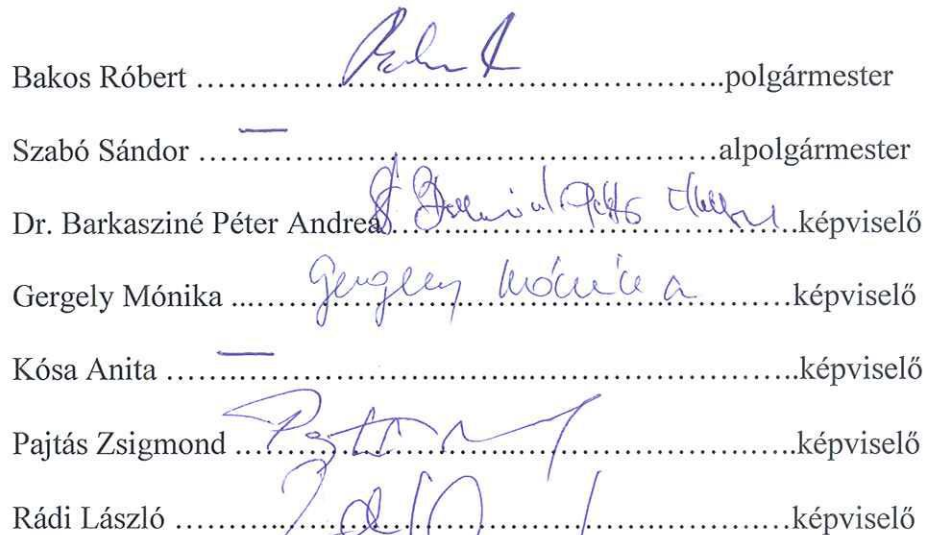 Bakos Róbert ……………………………………………….polgármester
Szabó Sándor ……………………………………………….alpolgármester
Dr. Barkasziné Péter Andrea…………………………………….képviselő
Gergely Mónika ...……Gergely Mónika…………képviselő
Kósa Anita …………………………………………………………..képviselő
Pajtás Zsigmond ……………………………………………….képviselő
Rádi László …………………………………………………….képviselő